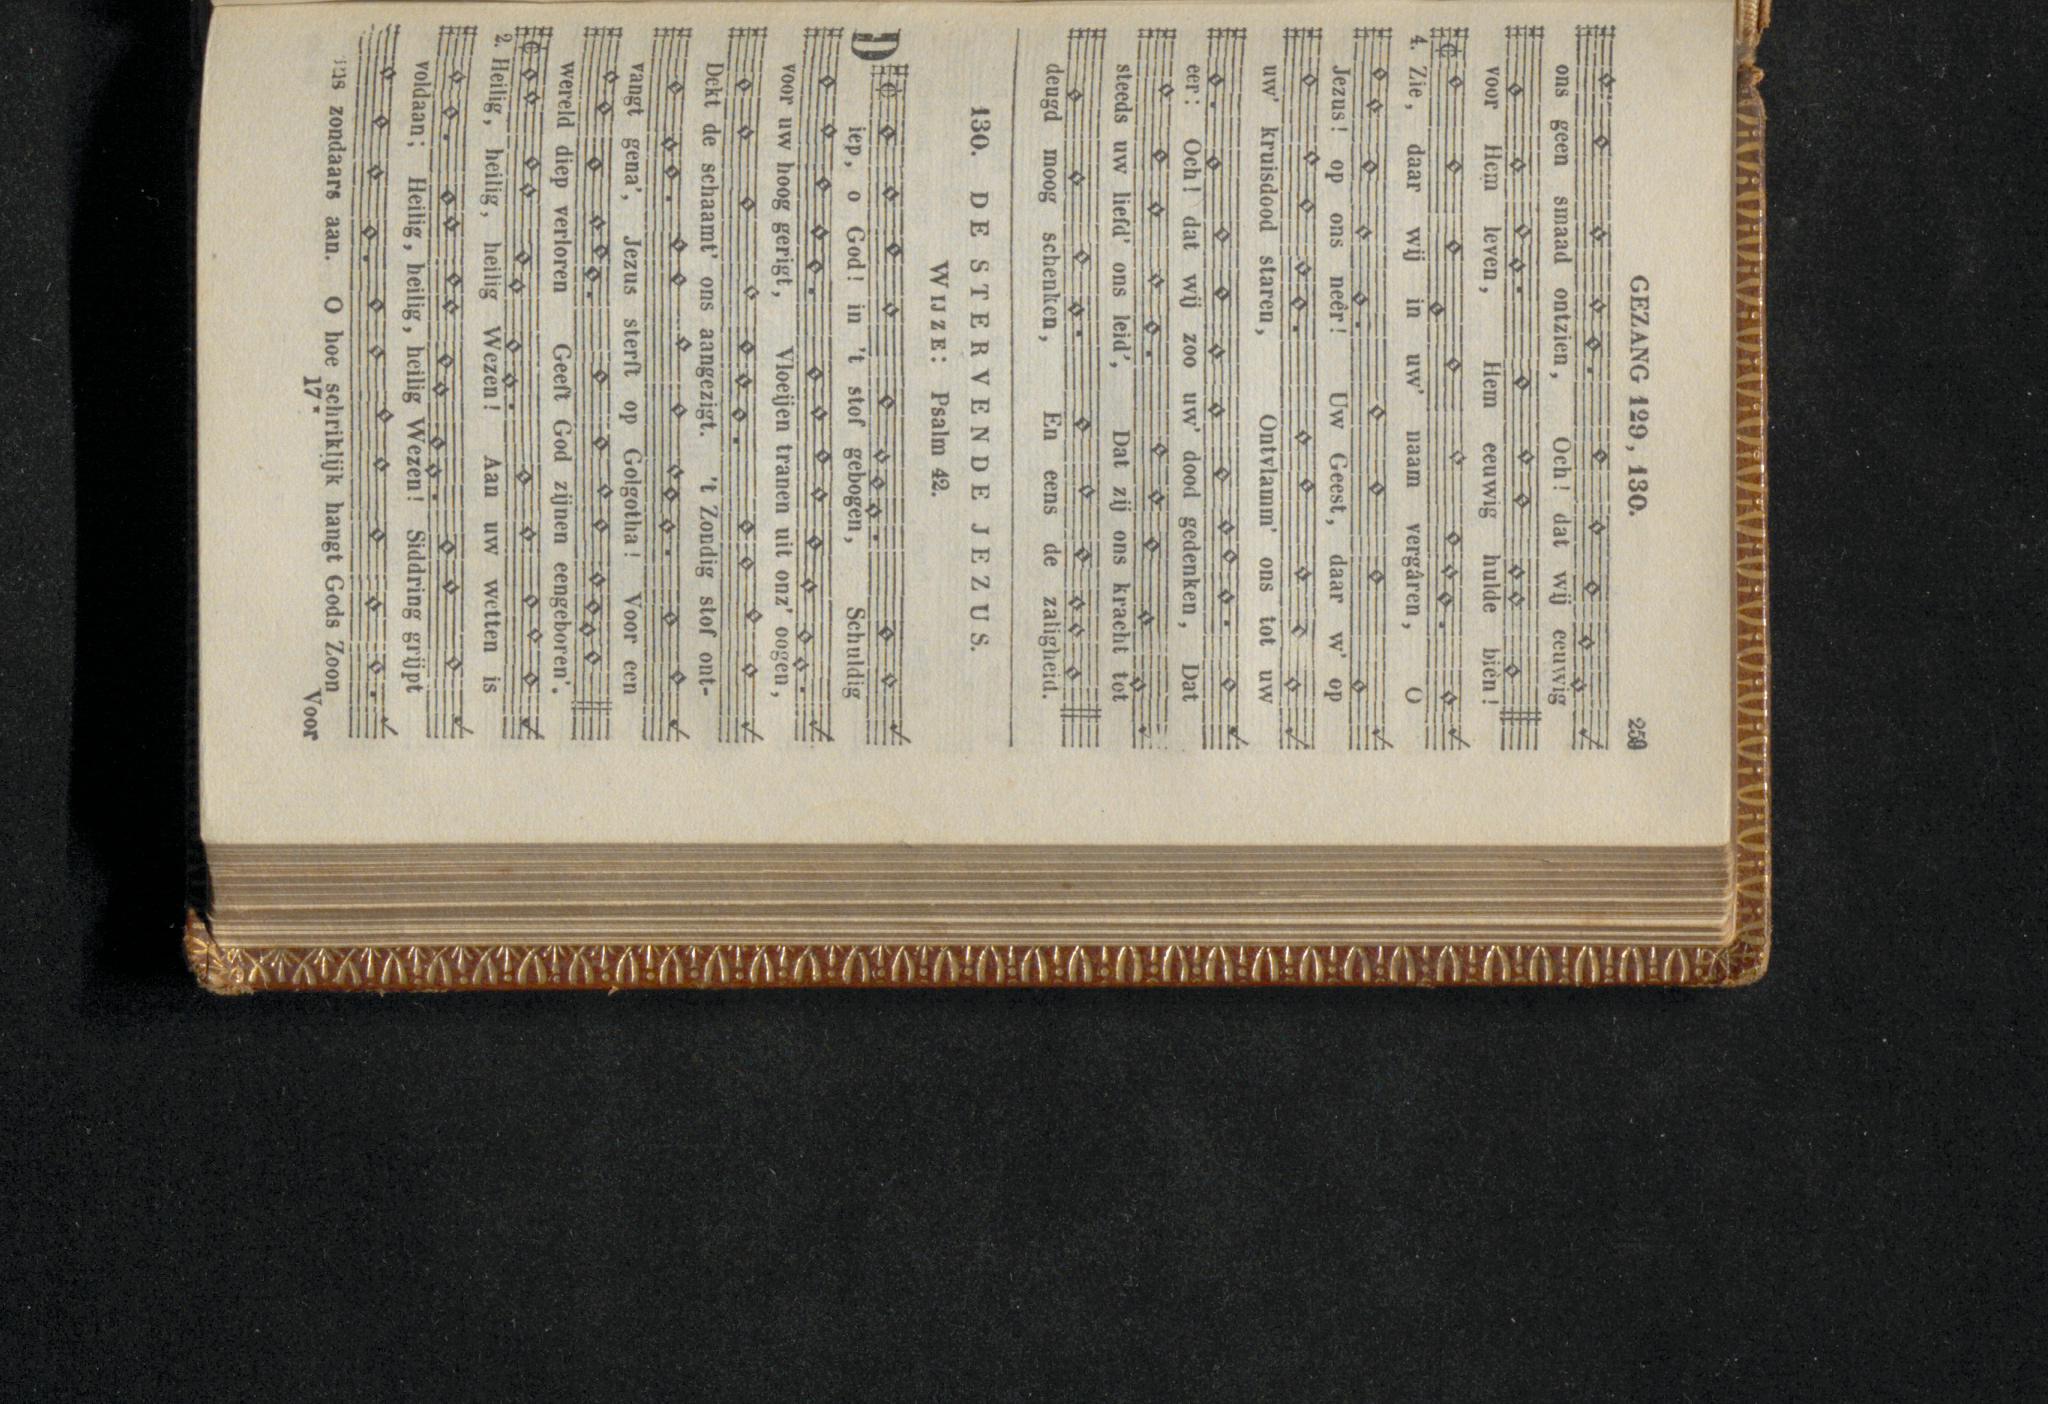 GEZANG 129, 130. 259
ons geen smaad ontzien, Och! dat wij eeuwig
voor Hem leven, Hem eeuwig hulde biên!
4. Zie, daar wij in uw' naam vergâren, O
Jezus! op ons neêr! Uw Geest, daar w' op
uw' kruisdood staren, Ontvlamm' ons tot uw
eer: Och! dat wij zoo uw' dood gedenken, Dat
steeds uw liefd' ons leid', Dat zij ons kracht tot
deugd moog schenken, En eens de zaligheid.
130. DE STERVENDE JEZUS.
WIJZE: Psalm 42.
Diep, o God! in 't stof gebogen, Schuldig
voor uw hoog gerigt, Vloeijen tranen uit onz' oogen,
Dekt de schaamt' ons aangezigt. 't Zondig stof ont-
vangt gena', Jezus sterft op Golgotha! Voor een
wereld diep verloren Geeft God zijnen eengeboren'.
2. Heilig, heilig, heilig Wezen! Aan uw wetten is
voldaan; Heilig, heilig, heilig Wezen! Siddring grijpt
ons zondaars aan. O hoe schriklijk hangt Gods Zoon
17* Voor